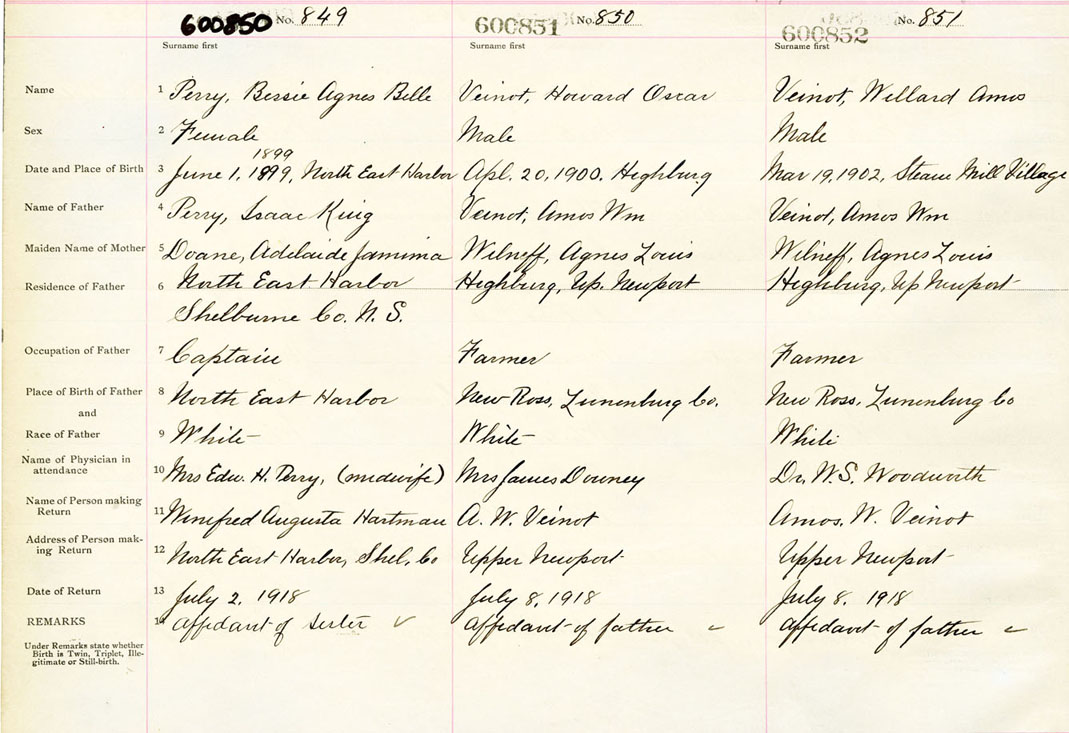 600850 No. 849 600851 No. 850 600852 No. 851
Surname first Surname first Surname first
Name 1 Perry, Bessie Agnes Belle Veinot, Howard Oscar Veinot, Willard Amos
Sex 2 Female Male Male
1899
Date and Place of Birth 3 June 1, 1899, North East Harbor Apl. 20, 1900. Highburg Mar 19, 1902, Steam Mill Village
Name of Father 4 Perry, Isaac King Veinot, Amos Wm Veinot, Amos Wm
Maiden Name of Mother 5 Doane, Adelaide Jamima Wilneff, Agnes Louis Wilneff, Agnes Louis
Residence of Father 6 North East Harbor Highburg, Up. Newport Highburg, Up Newport
Shelburne Co. N. S.
Occupation of Father 7 Captain Farmer Farmer
Place of Birth of Father 8 North East Harbor New Ross, Lunenburg Co. New Ross, Lunenburg Co
and
Race of Father 9 White White White
Name of Physician in
attendance 10 Mrs Edw. H. Perry, (midwife) Mrs James Downey Dr. W. S. Woodworth
Name of Person making
Return 11 Winifred Augusta Hartman A. W. Veinot Amos. W. Veinot
Address of Person mak-
ing Return 12 North East Harbor, Shel, Co Upper Newport Upper Newport
Date of Return 13 July 2, 1918 July 8, 1918 July 8, 1918
REMARKS 14 Affidavit of sister Affidavit of father Affidavit of father
Under Remarks state whether
Birth is Twin, Triplet, Ille-
gitimate or Still-birth.